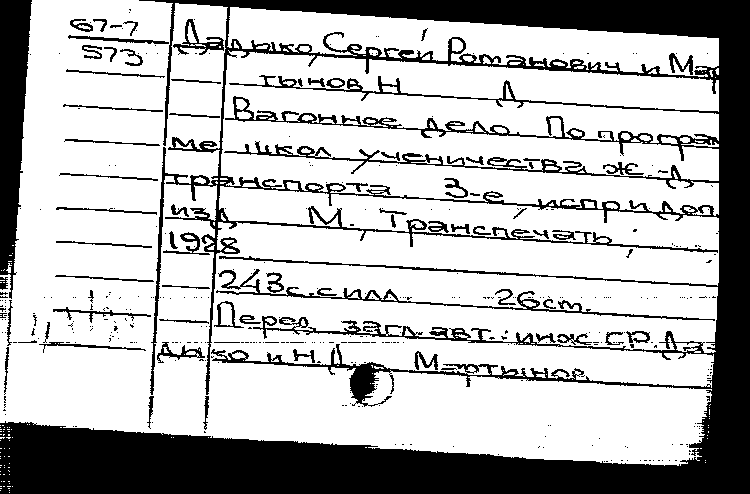 67-7
573
Дадыко, Сергей Романович и Мар
тынов, Н Д
Вагонное дело. По програм
ме школ ученичества ж-д
транспорта. 3-е, испр. и доп.
изд. М., Транспечать,
1928
243 с. с илл. 26 cm.
Перед загл. авт.: инж С.Р. Да-
дыко и Н.Д. Мартынов